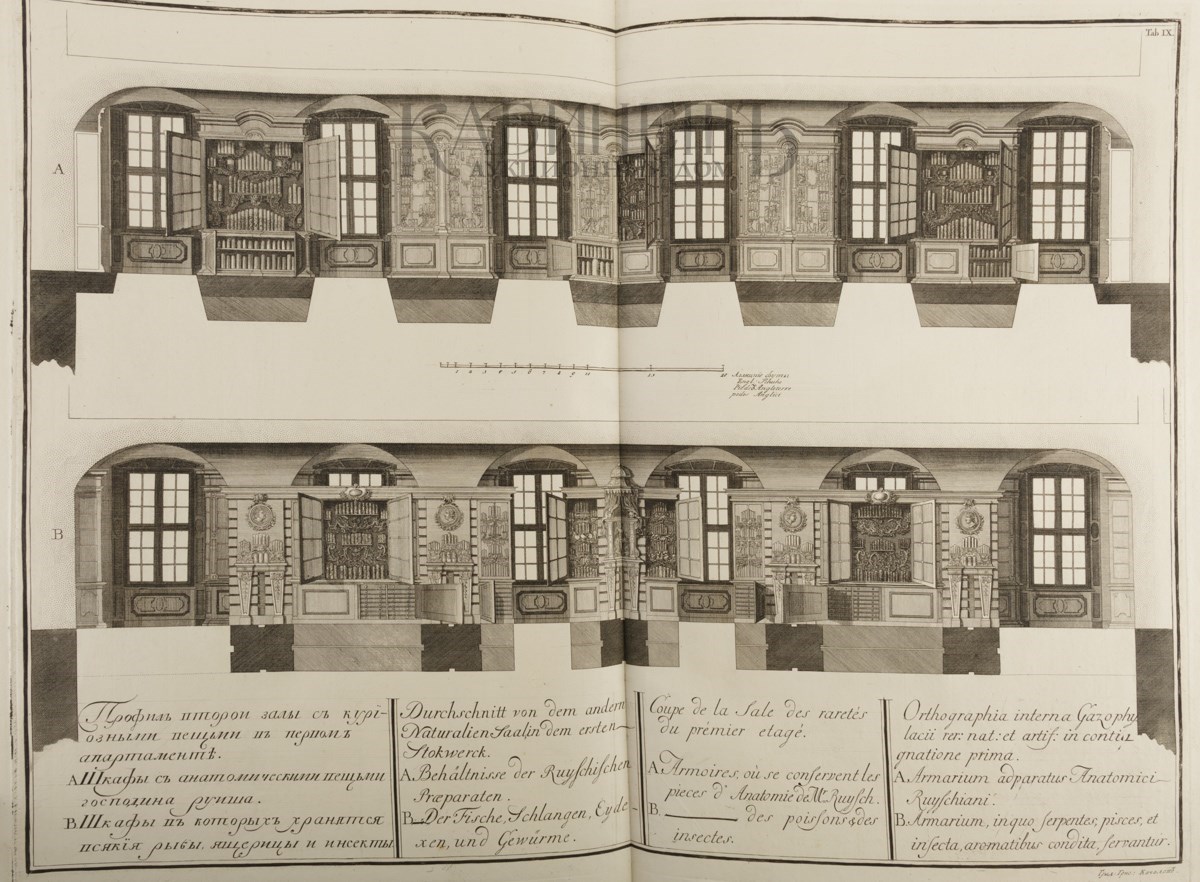 Tab IX.
КАБИНЕТЪ
АУКЦИОННЫЙ ДОМ
A
1 2 3 4 5 6 7 8 9 10 15 20
pedes Anglici
B
Профиль второй залы съ курї-
озными вещьми въ первомъ
апартаментѣ.
A Шкафы съ анатомическими вещьми
господина руиша.
B Шкафы въ которыхъ хранятся
всякїя рыбы, ящерицы и инсекты
Durchschnitt von dem andern
Naturalien Saal in dem ersten
Stokwerck.
A. Behältnisse der Ruyschischen
Præparaten.
B. Der Fische, Schlangen, Eyde-
xen, und Gewürme.
Coupe de la Sale des raretés
du prémier etagé.
A. Armoires, où se conservent les
pieces d'Anatomie de Mr. Ruysch.
B. des poissons & des
insectes.
Orthographia interna Gazophy
lacii rer: nat: et artif: in contig
gnatione prima.
A. Armarium adparatus Anatomici
Ruyschiani.
B. Armarium, in quo serpentes, pisces, et
insecta, aromatibus condita, servantur.
Грид. Григ. Качаловъ